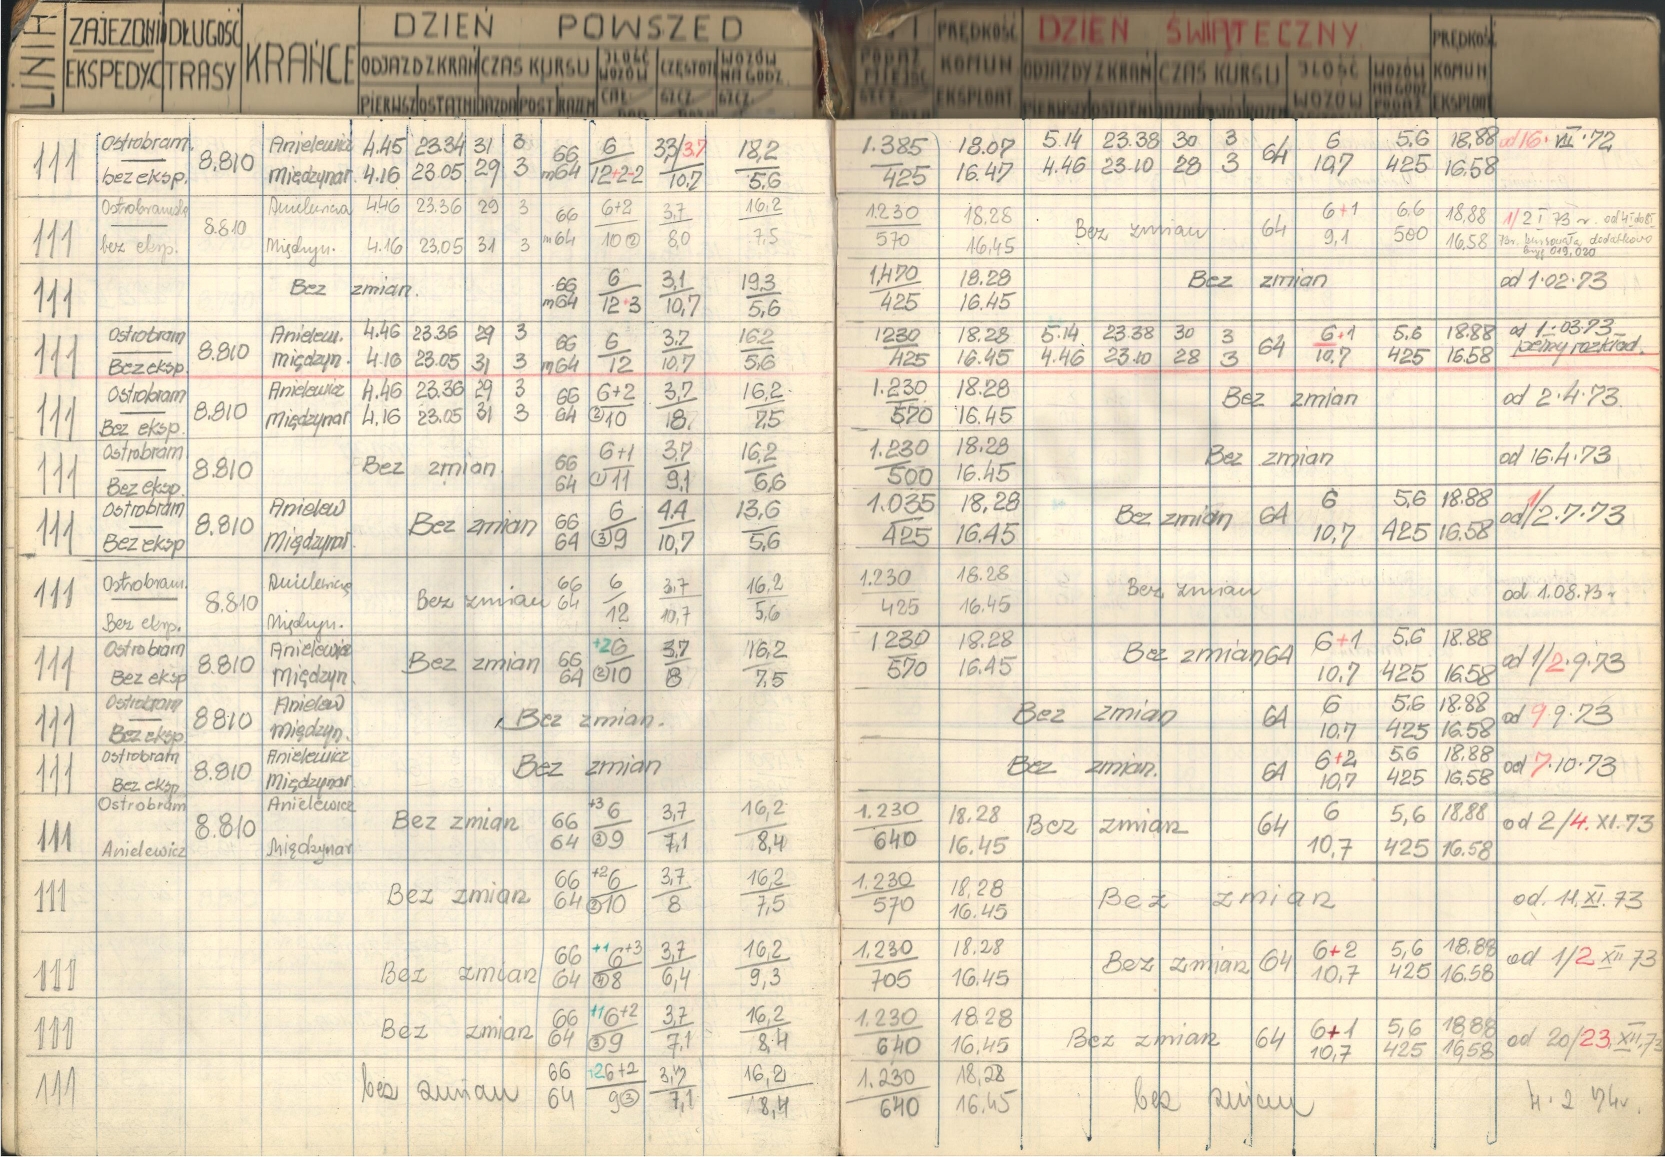 LINIA ZAJEZDNI DŁUGOŚĆ KRAŃCE DZIEŃ POWSZED PRĘDKOŚĆ DZIEŃ ŚWIĄTECZNY PRĘDKOŚĆ
EKSPEDYC TRASY ODJAZD Z KRAŃ CZAS KURSU ILOŚĆ WOZÓW CZĘSTOT WOZÓW NA GODZ. PODAŻ MIEJSC KOMUN ODJAZDY Z KRAŃ CZAS KURSU ILOŚĆ WOZÓW WOZÓW NA GODZ KOMUN
PIERWSZ OSTATNI JAZDA POST RAZEM CAŁ. SZCZ. SZCZ. SZCZ. EKSPLOAT PIERWSZ OSTATNI PODAŻ EKSPLOAT
111 Ostrobram. 8.810 Anielewicz 4.45 23.34 31 3 66 6 33/3.7 18,2 1.385 18.07 5.14 23.38 30 3 64 6 5,6 18,88 od 16. VII. 72
bez eksp. Międzynar. 4.16 23.05 29 3 m64 12+2-2 10,7 5,6 425 16.47 4.46 23.10 28 3 10,7 425 16.58
111 8.810 4.46 23.36 29 3 66 6+2 3,7 16,2 1230 18.28 Bez zmian 64 6+1 6.6 18,88 1/2 I 73 r.
bez eksp. Międzyn. 4.16 23.05 31 3 m64 10② 8,0 7,5 570 16,45 9,1 500 16.58 73r. kursowała dodatkowo
bryg 019,020
111 Bez zmian. 66 6 3,1 19,3 1,470 18.28 Bez zmian od 1.02.73
m64 12+3 10,7 5,6 425 16.45
111 Ostrobram 8.810 Anielew. 4.46 23.36 29 3 66 6 3.7 16.2 1230 18.28 5.14 23.38 30 3 64 6+1 5,6 18.88 od 1.03.73
Bez eksp. Międzyn. 4.16 23.05 31 3 m64 12 10,7 5,6 425 16.45 4.46 23.10 28 3 10,7 425 16.58 pełny rozkład.
111 Ostrobram 8.810 Anielewicz 4.46 23.36 29 3 66 6+2 3,7 16,2 1.230 18.28 Bez zmian od 2.4.73
Bez eksp. Międzynar 4.16 23.05 31 3 64 ②10 18. 7,5 570 16.45
111 Ostrobram 8.810 Bez zmian 66 6+1 3,7 16,2 1.230 18.28 Bez zmian od 16.4.73
Bez eksp. 64 ①11 9,1 6,6 500 16.45
111 Ostrobram 8.810 Anielew Bez zmian 66 6 4.4 13,6 1.035 18,28 Bez zmian 64 6 5,6 18.88 od 1/2.7.73
Bez eksp Międzynar. 64 ③9 10,7 5,6 425 16.45 10,7 425 16.58
111 Ostrobram. 8.810 Bez zmian 66 6 3,7 16,2 1.230 18.28 Bez zmian od 1.08.73 r
Bez eksp. Międzyn. 64 12 10,7 5,6 425 16.45
111 Ostrobram 8.810 Anielewicz Bez zmian 66 +26 3,7 16,2 1230 18.28 Bez zmian 64 6+1 5,6 18.88 od 1/2.9.73
Bez eksp Międzyn. 64 ②10 8 7,5 570 16.45 10,7 425 16.58
111 Ostrobram 8.810 Anielew Bez zmian. Bez zmian 64 6 5.6 18.88 od 9.9.73
Bez eksp Międzyn. 10,7 425 16.58
111 Ostrobram 8.810 Anielewicz Bez zmian Bez zmian. 64 6+2 5,6 18.88 od 7.10.73
Bez eksp. Międzynar 10,7 425 16.58
111 Ostrobram 8.810 Anielewicz Bez zmian 66 +3 6 3,7 16,2 1.230 18.28 Bez zmian 64 6 5,6 18,88 od 2/4. XI.73
Anielewicz Międzynar 64 ③9 7,1 8,4 640 16.45 10,7 425 16.58
111 Bez zmian 66 +26 3,7 16,2 1.230 18.28 Bez zmian od. 11.XI.73
64 ②10 8 7,5 570 16.45
111 Bez zmian 66 +16+3 3,7 16,2 1.230 18.28 Bez zmian 64 6+2 5,6 18.88 od 1/2 XII 73
64 ④8 6,4 9,3 705 16.45 10,7 425 16.58
111 Bez zmian 66 +16+2 3,7 16,2 1.230 18.28 Bez zmian 64 6+1 5,6 18.88 od 20/23.XII.73
64 ③9 7,1 8,4 640 16,45 10,7 425 16,58
111 bez zmian 66 +26+2 3,7 16,2 1.230 18,28 bez zmian 4.2 74r.
64 9③ 7,1 8,4 640 16.45